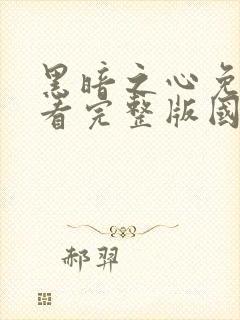 黑暗之心免
看完整版國
郝羿